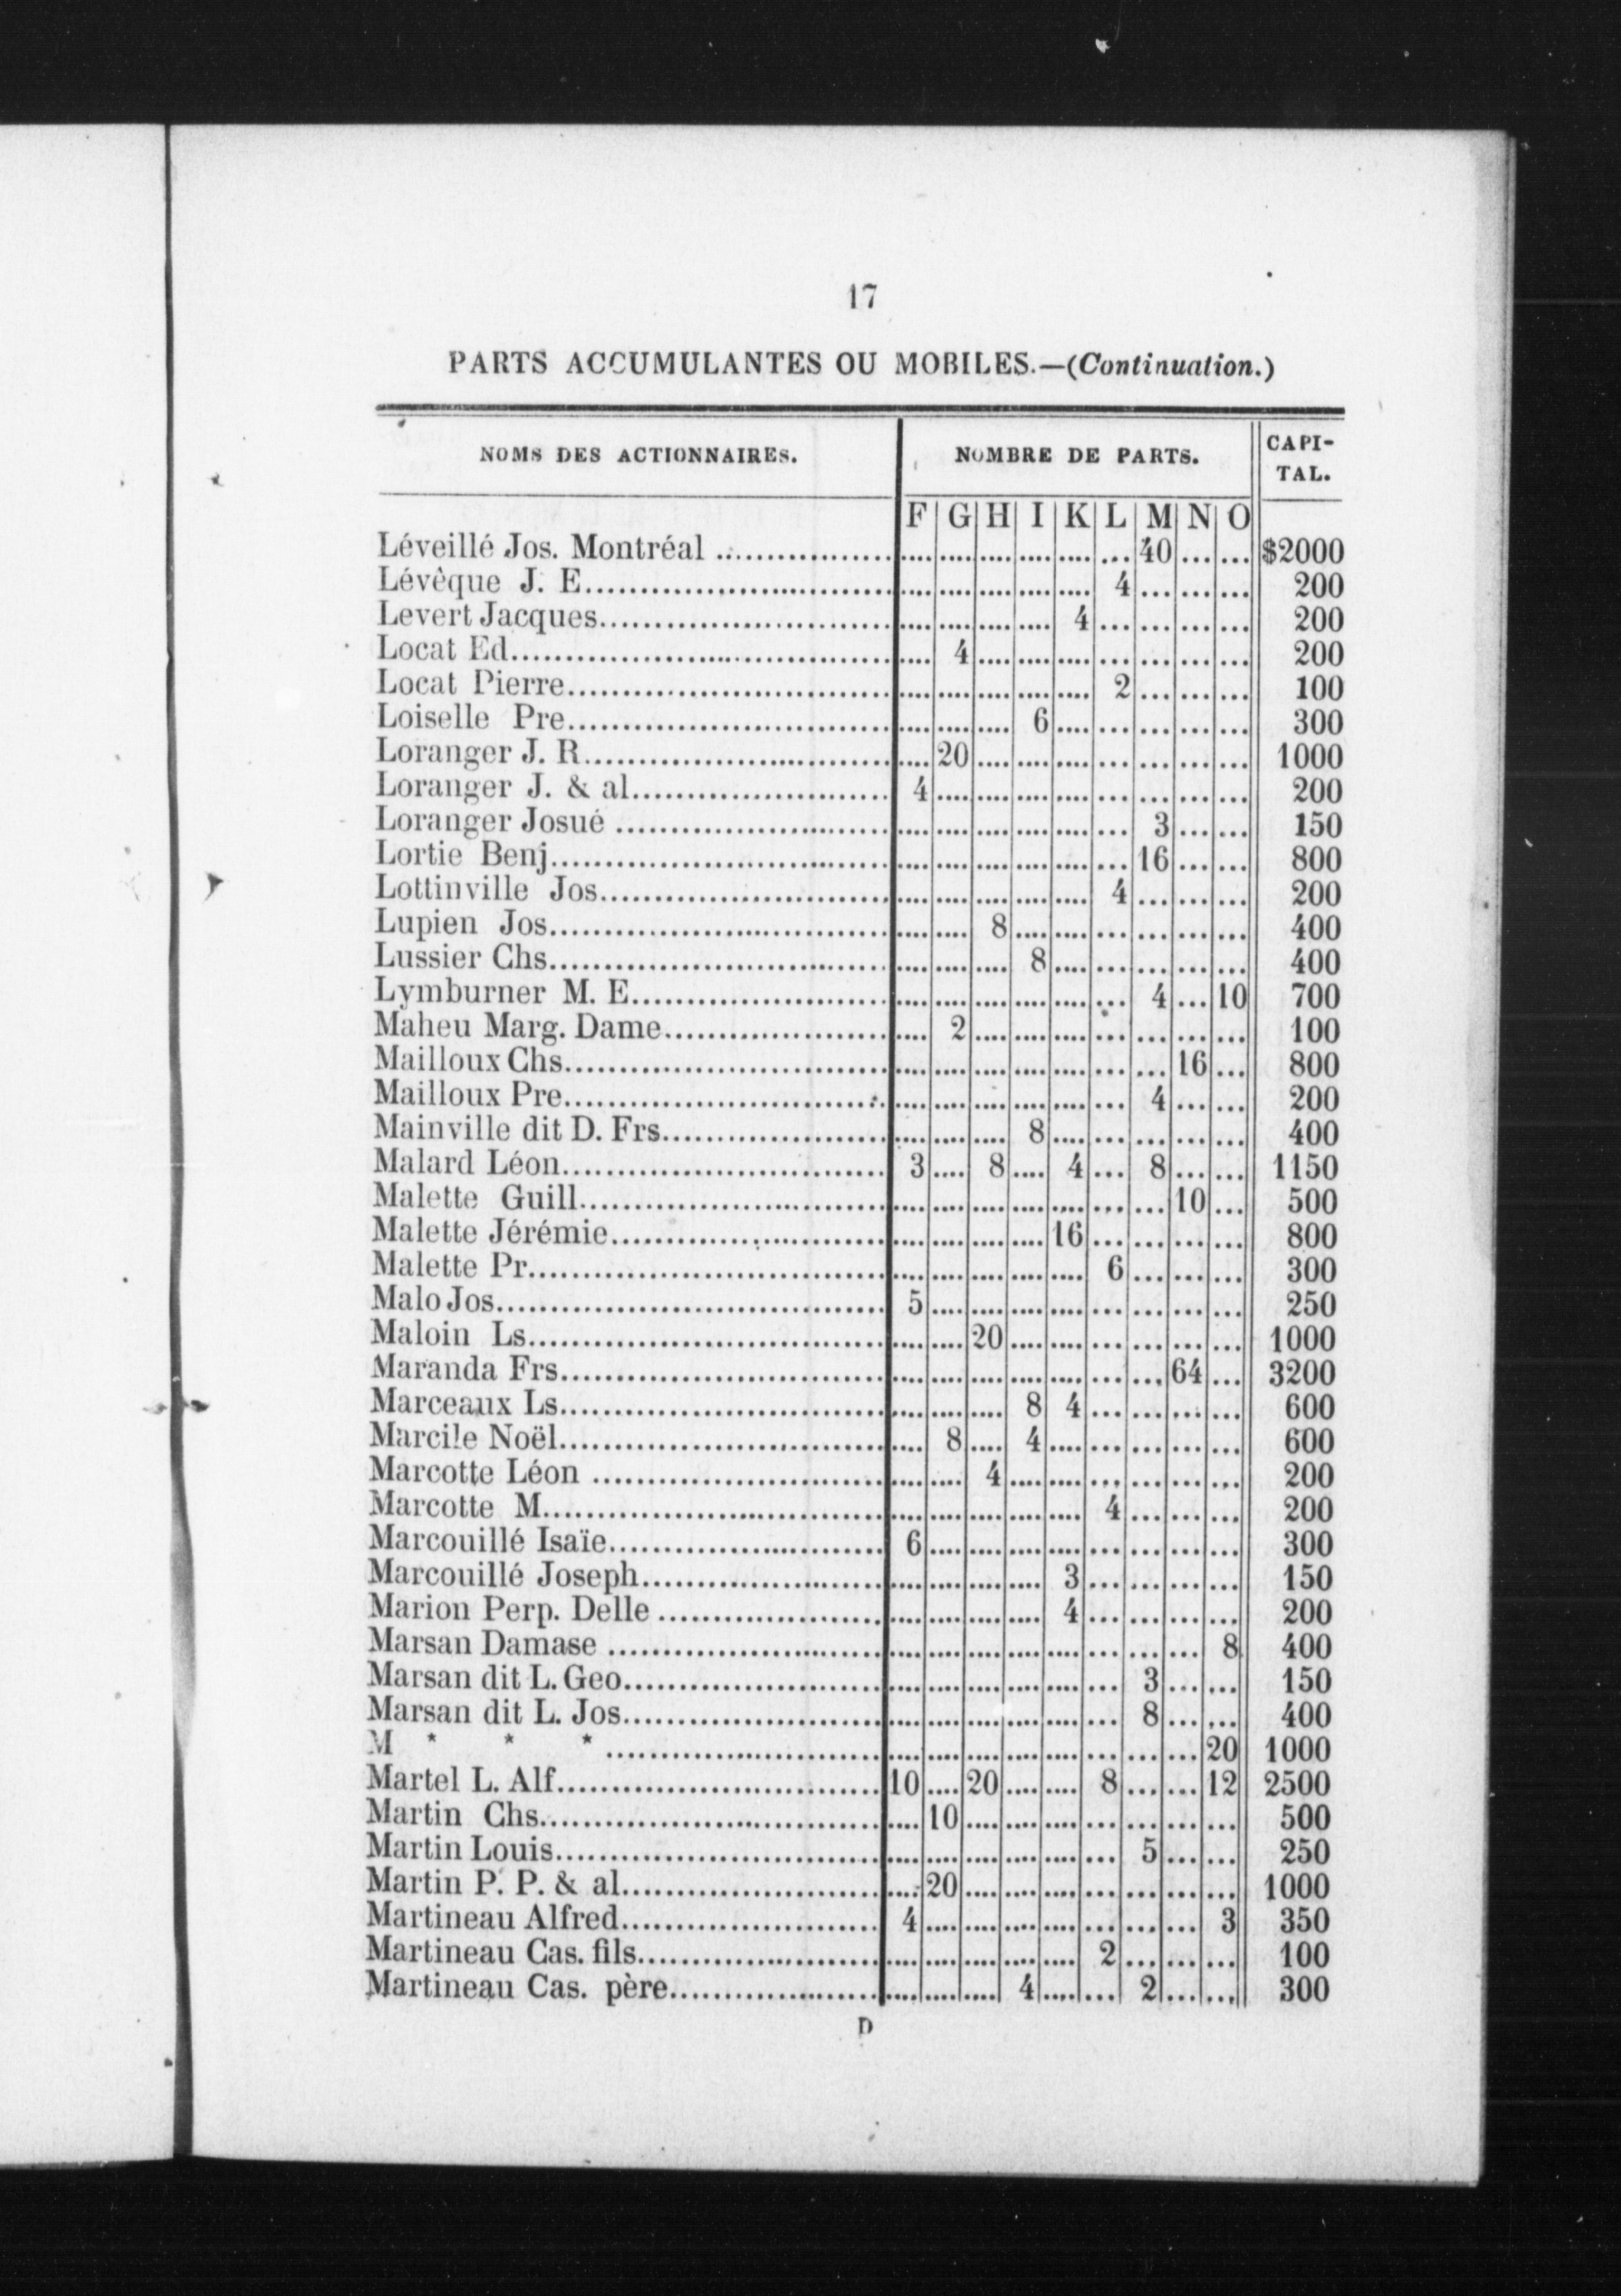 17
PARTS ACCUMULANTES OU MOBILES.—(Continuation.)
NOMS DES ACTIONNAIRES. NOMBRE DE PARTS. CAPI-
TAL.
F G H I K L M N O
Léveillé Jos. Montréal .................. .... .... .... .... .... ... 40 ... ... $2000
Lévêque J. E............................. .... .... .... .... .... 4 ... ... ... 200
Levert Jacques........................... .... .... .... .... 4 ... ... ... ... 200
Locat Ed................................. .... 4 .... .... .... ... ... ... ... 200
Locat Pierre............................. .... .... .... .... .... 2 ... ... ... 100
Loiselle Pre............................. .... .... .... 6 .... ... ... ... ... 300
Loranger J. R............................ .... 20 .... .... .... ... ... ... ... 1000
Loranger J. & al......................... 4 .... .... .... .... ... ... ... ... 200
Loranger Josué .......................... .... .... .... .... .... ... 3 ... ... 150
Lortie Benj.............................. .... .... .... .... .... ... 16 ... ... 800
Lottinville Jos.......................... .... .... .... .... .... 4 ... ... ... 200
Lupien Jos............................... .... .... 8 .... .... ... ... ... ... 400
Lussier Chs.............................. .... .... .... 8 .... ... ... ... ... 400
Lymburner M. E........................... .... .... .... .... .... ... 4 ... 10 700
Maheu Marg. Dame......................... .... 2 .... .... .... ... ... ... ... 100
Mailloux Chs............................. .... .... .... .... .... ... ... 16 ... 800
Mailloux Pre............................. .... .... .... .... .... ... 4 ... ... 200
Mainville dit D. Frs..................... .... .... .... 8 .... ... ... ... ... 400
Malard Léon.............................. 3 .... 8 .... 4 ... 8 ... ... 1150
Malette Guill............................ .... .... .... .... .... ... ... 10 ... 500
Malette Jérémie.......................... .... .... .... .... 16 ... ... ... ... 800
Malette Pr............................... .... .... .... .... .... 6 ... ... ... 300
Malo Jos................................. 5 .... .... .... .... ... ... ... ... 250
Maloin Ls................................ .... .... 20 .... .... ... ... ... ... 1000
Maranda Frs.............................. .... .... .... .... .... ... ... 64 ... 3200
Marceaux Ls.............................. .... .... .... 8 4 ... ... ... ... 600
Marcile Noël............................. .... 8 .... 4 .... ... ... ... ... 600
Marcotte Léon ........................... .... .... 4 .... .... ... ... ... ... 200
Marcotte M............................... .... .... .... .... .... 4 ... ... ... 200
Marcouillé Isaïe......................... 6 .... .... .... .... ... ... ... ... 300
Marcouillé Joseph........................ .... .... .... .... 3 ... ... ... ... 150
Marion Perp. Delle ...................... .... .... .... .... 4 ... ... ... ... 200
Marsan Damase ........................... .... .... .... .... .... ... ... ... 8 400
Marsan dit L. Geo........................ .... .... .... .... .... ... 3 ... ... 150
Marsan dit L. Jos........................ .... .... .... .... .... ... 8 ... ... 400
M * * * ........................... .... .... .... .... .... ... ... ... 20 1000
Martel L. Alf............................ 10 .... 20 .... .... 8 ... ... 12 2500
Martin Chs............................... .... 10 .... .... .... ... ... ... ... 500
Martin Louis............................. .... .... .... .... .... ... 5 ... ... 250
Martin P. P. & al........................ .... 20 .... .... .... ... ... ... ... 1000
Martineau Alfred......................... 4 .... .... .... .... ... ... ... 3 350
Martineau Cas. fils...................... .... .... .... .... .... 2 ... ... ... 100
Martineau Cas. père...................... .... .... .... 4 .... ... 2 ... ... 300
D